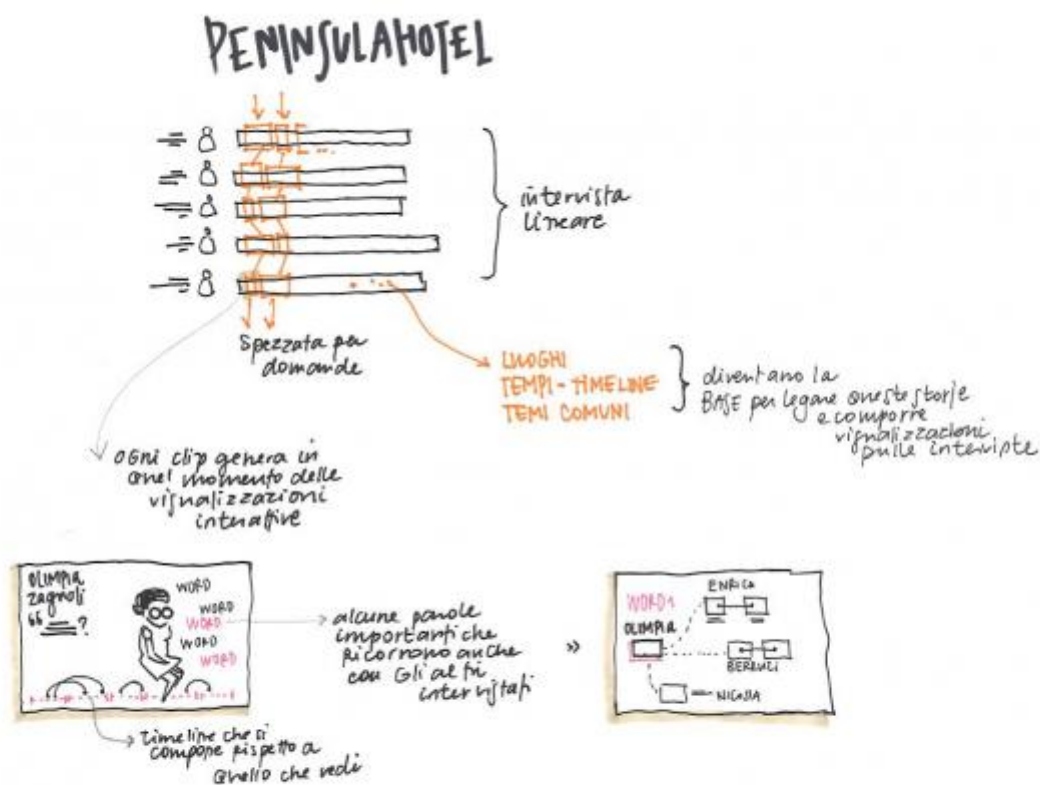 PENINSULAHOTEL
intervista
lineare
Spezzata per
domande
LUOGHI
TEMPI - TIMELINE
TEMI COMUNI
diventano la
BASE per legare queste storie
e comporre
visualizzazioni
sulle interviste
OGni clip genera in
quel momento delle
visualizzazioni
interattive
OLIMPIA
Zagnoli
“ ?
WORD
WORD
WORD
WORD
WORD
alcune parole
importanti che
RICORRONO anche
con Gli altri
intervistati
»
WORD 1
OLIMPIA
ENRICA
NICOSIA
timeline che si
compone rispetto a
quello che vedi